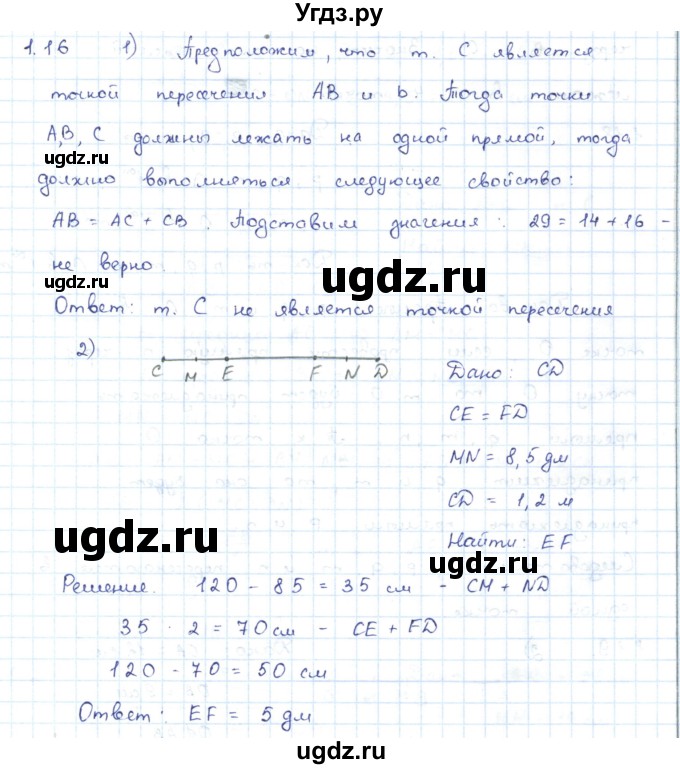 Угдз.ру
1.16 1) Предположим, что т. C является
точкой пересечения AB и b. Тогда точки
A,B, C должны лежать на одной прямой, тогда
ugdz.ru
ugdz.ru
должно выполняться следующее свойство:
AB = AC + CB. Подставим значения: 29 = 14 + 16 -
не верно.
ugdz.ru
Ответ: т. C не является точкой пересечения
2)
C M E F N D
Дано: CD
CE = FD
MN = 8,5 дм
CD = 1,2 м
ugdz.ru
Найти: EF
ugdz.ru
Решение. 120 - 85 = 35 см - CM + ND
35 · 2 = 70 см - CE + FD
120 - 70 = 50 см
Ответ: EF = 5 дм
ugdz.ru
ugdz.ru